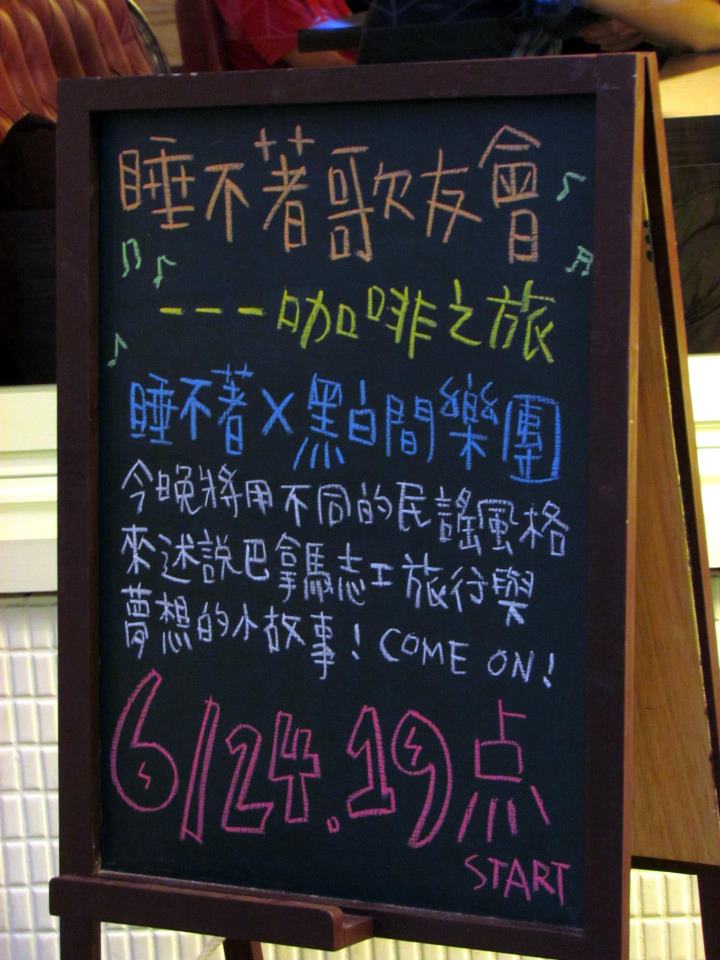 睡不著歌友會
---咖啡之旅
睡不著X黑白間樂團
今晚將用不同的民謠風格
來述說巴拿馬志工旅行與
夢想的小故事！COME ON!
6/24.19点
START